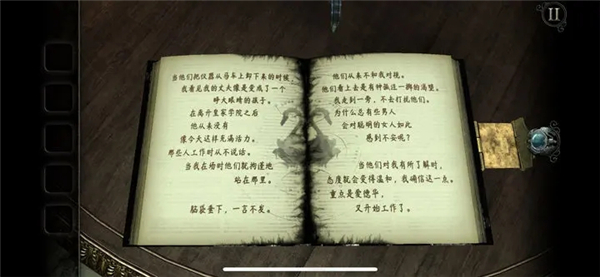 当他们把仪器从马车上卸下来的时候，
我看见我的丈夫像是变成了一个
睁大眼睛的孩子。
在离开皇家学院之后
他从来没有
像今天这样充满活力。
那些人工作时从不说话。
当我在场时他们就拘谨地
站在那里。
脑袋垂下，一言不发。
他们从来不和我对视。
他们看上去是有种掀这一脚的渴望。
我走到一旁，不去打扰他们。
为什么总有些男人
会对聪明的女人如此
感到不安呢？
当他们对我有所了解时，
态度就会变得温和，我确信这一点。
重点是爱德华，
又开始工作了。